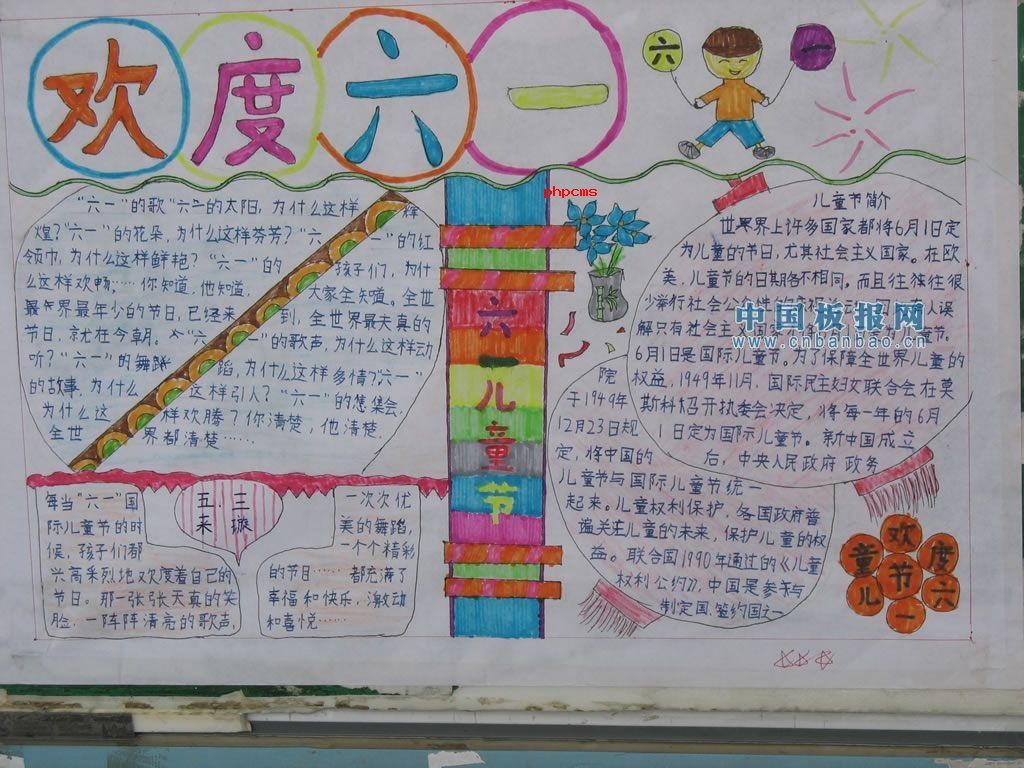 欢度六一
六 一
phpcms
"六一"的歌"六一的太阳,为什么这样辉
煌?"六一"的花朵,为什么这样芬芳?"六一"的红
领巾,为什么这样鲜艳?"六一"的孩子们,为什
么这样欢畅……你知道,他知道,大家全知道。全世
界最年少的节日,已经来到,全世界最天真的
节日,就在今朝。"六一"的歌声,为什么这样动
听?"六一"的舞蹈,为什么这样多情?"六一"
的故事,为什么这样引人?"六一"的集会,
为什么这样欢腾?你清楚,他清楚,
全世界都清楚……
五三
采璇
每当"六一"国
际儿童节的时
候,孩子们都
兴高采烈地欢度着自己的
节日。那一张张天真的笑
脸,一阵阵清亮的歌声,
一次次优
美的舞蹈,
一个个精彩
的节目……都充满了
幸福和快乐,激动
和喜悦……
六一儿童节
儿童节简介
世界上许多国家都将6月1日定
为儿童的节日,尤其社会主义国家。在欧
美,儿童节的日期各不相同。而且往往很
少举行社会公
人误
解只有社会主义国
儿童节。
6月1日是国际儿童节。为了保障全世界儿童的
权益,1949年11月,国际民主妇女联合会在莫
斯科召开执委会决定,将每一年的6月
1日定为国际儿童节。新中国成立
后,中央人民政府政务
院
于1949年
12月23日规
定,将中国的
儿童节与国际儿童节统一
起来。儿童权利保护,各国政府普
遍关注儿童的未来,保护儿童的权
益。联合国1990年通过的《儿童
权利公约》,中国是参与
制定国签约国之一
中国板报网
www.cnbanbao.cn
欢
童 度
节
儿 六
一